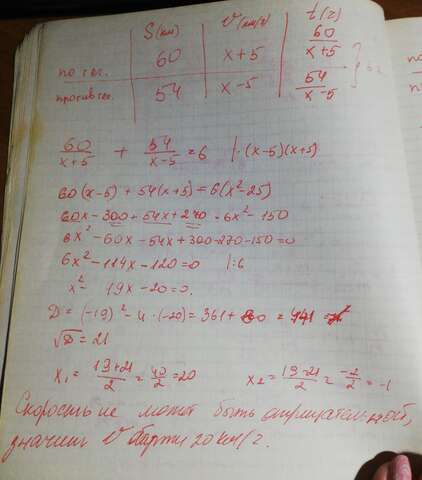 S(км) v(км/ч) t(г)
по теч. 60 x+5 60/(x+5)
против теч. 54 x-5 54/(x-5)
60/(x+5) + 54/(x-5) = 6 |·(x-5)(x+5)
60(x-5) + 54(x+5) = 6(x²-25)
60x-300+54x+270=6x²-150
6x²-60x-54x+300-270-150=0
6x²-114x-120=0 |:6
x²-19x-20=0.
D=(-19)²-4·(-20)=361+80=441
√D=21
x₁=(19+21)/2=40/2=20 x₂=(19-21)/2=-2/2=-1
Скорость не может быть отрицательной,
значит v баржи 20 км/г.